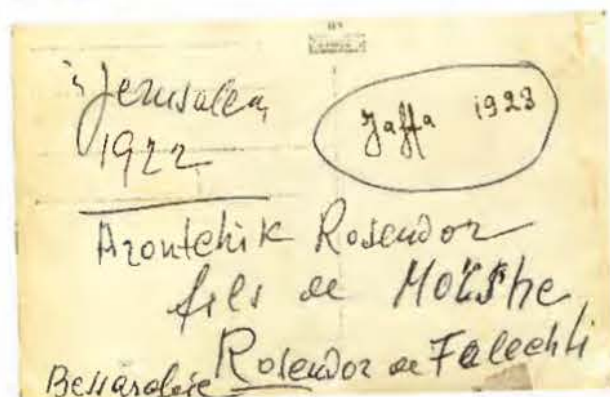 Jerusalem
1922
Jaffa 1923
Arontchik Rosendor
fils de Moïshe
Rosendor de Falechti
Bessarabie